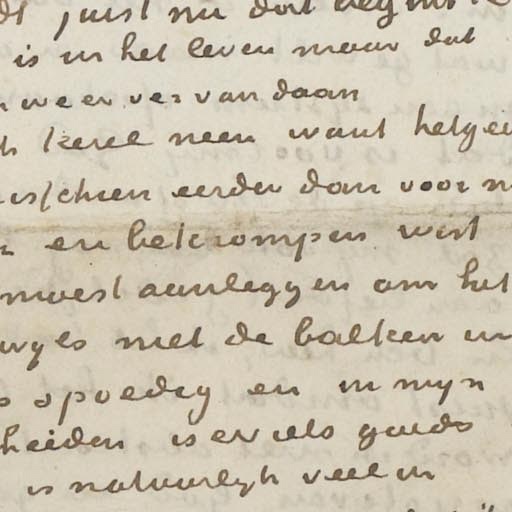 juist nu dat
is in het leven maar dat
weer ver van daan
kerel neen want hetgee
eerder dan voor m
en bekrompen wist
moest aanleggen om het
met de balken in
spoedig en in mijn
heiden is er iets goeds
is natuurlijk veel in